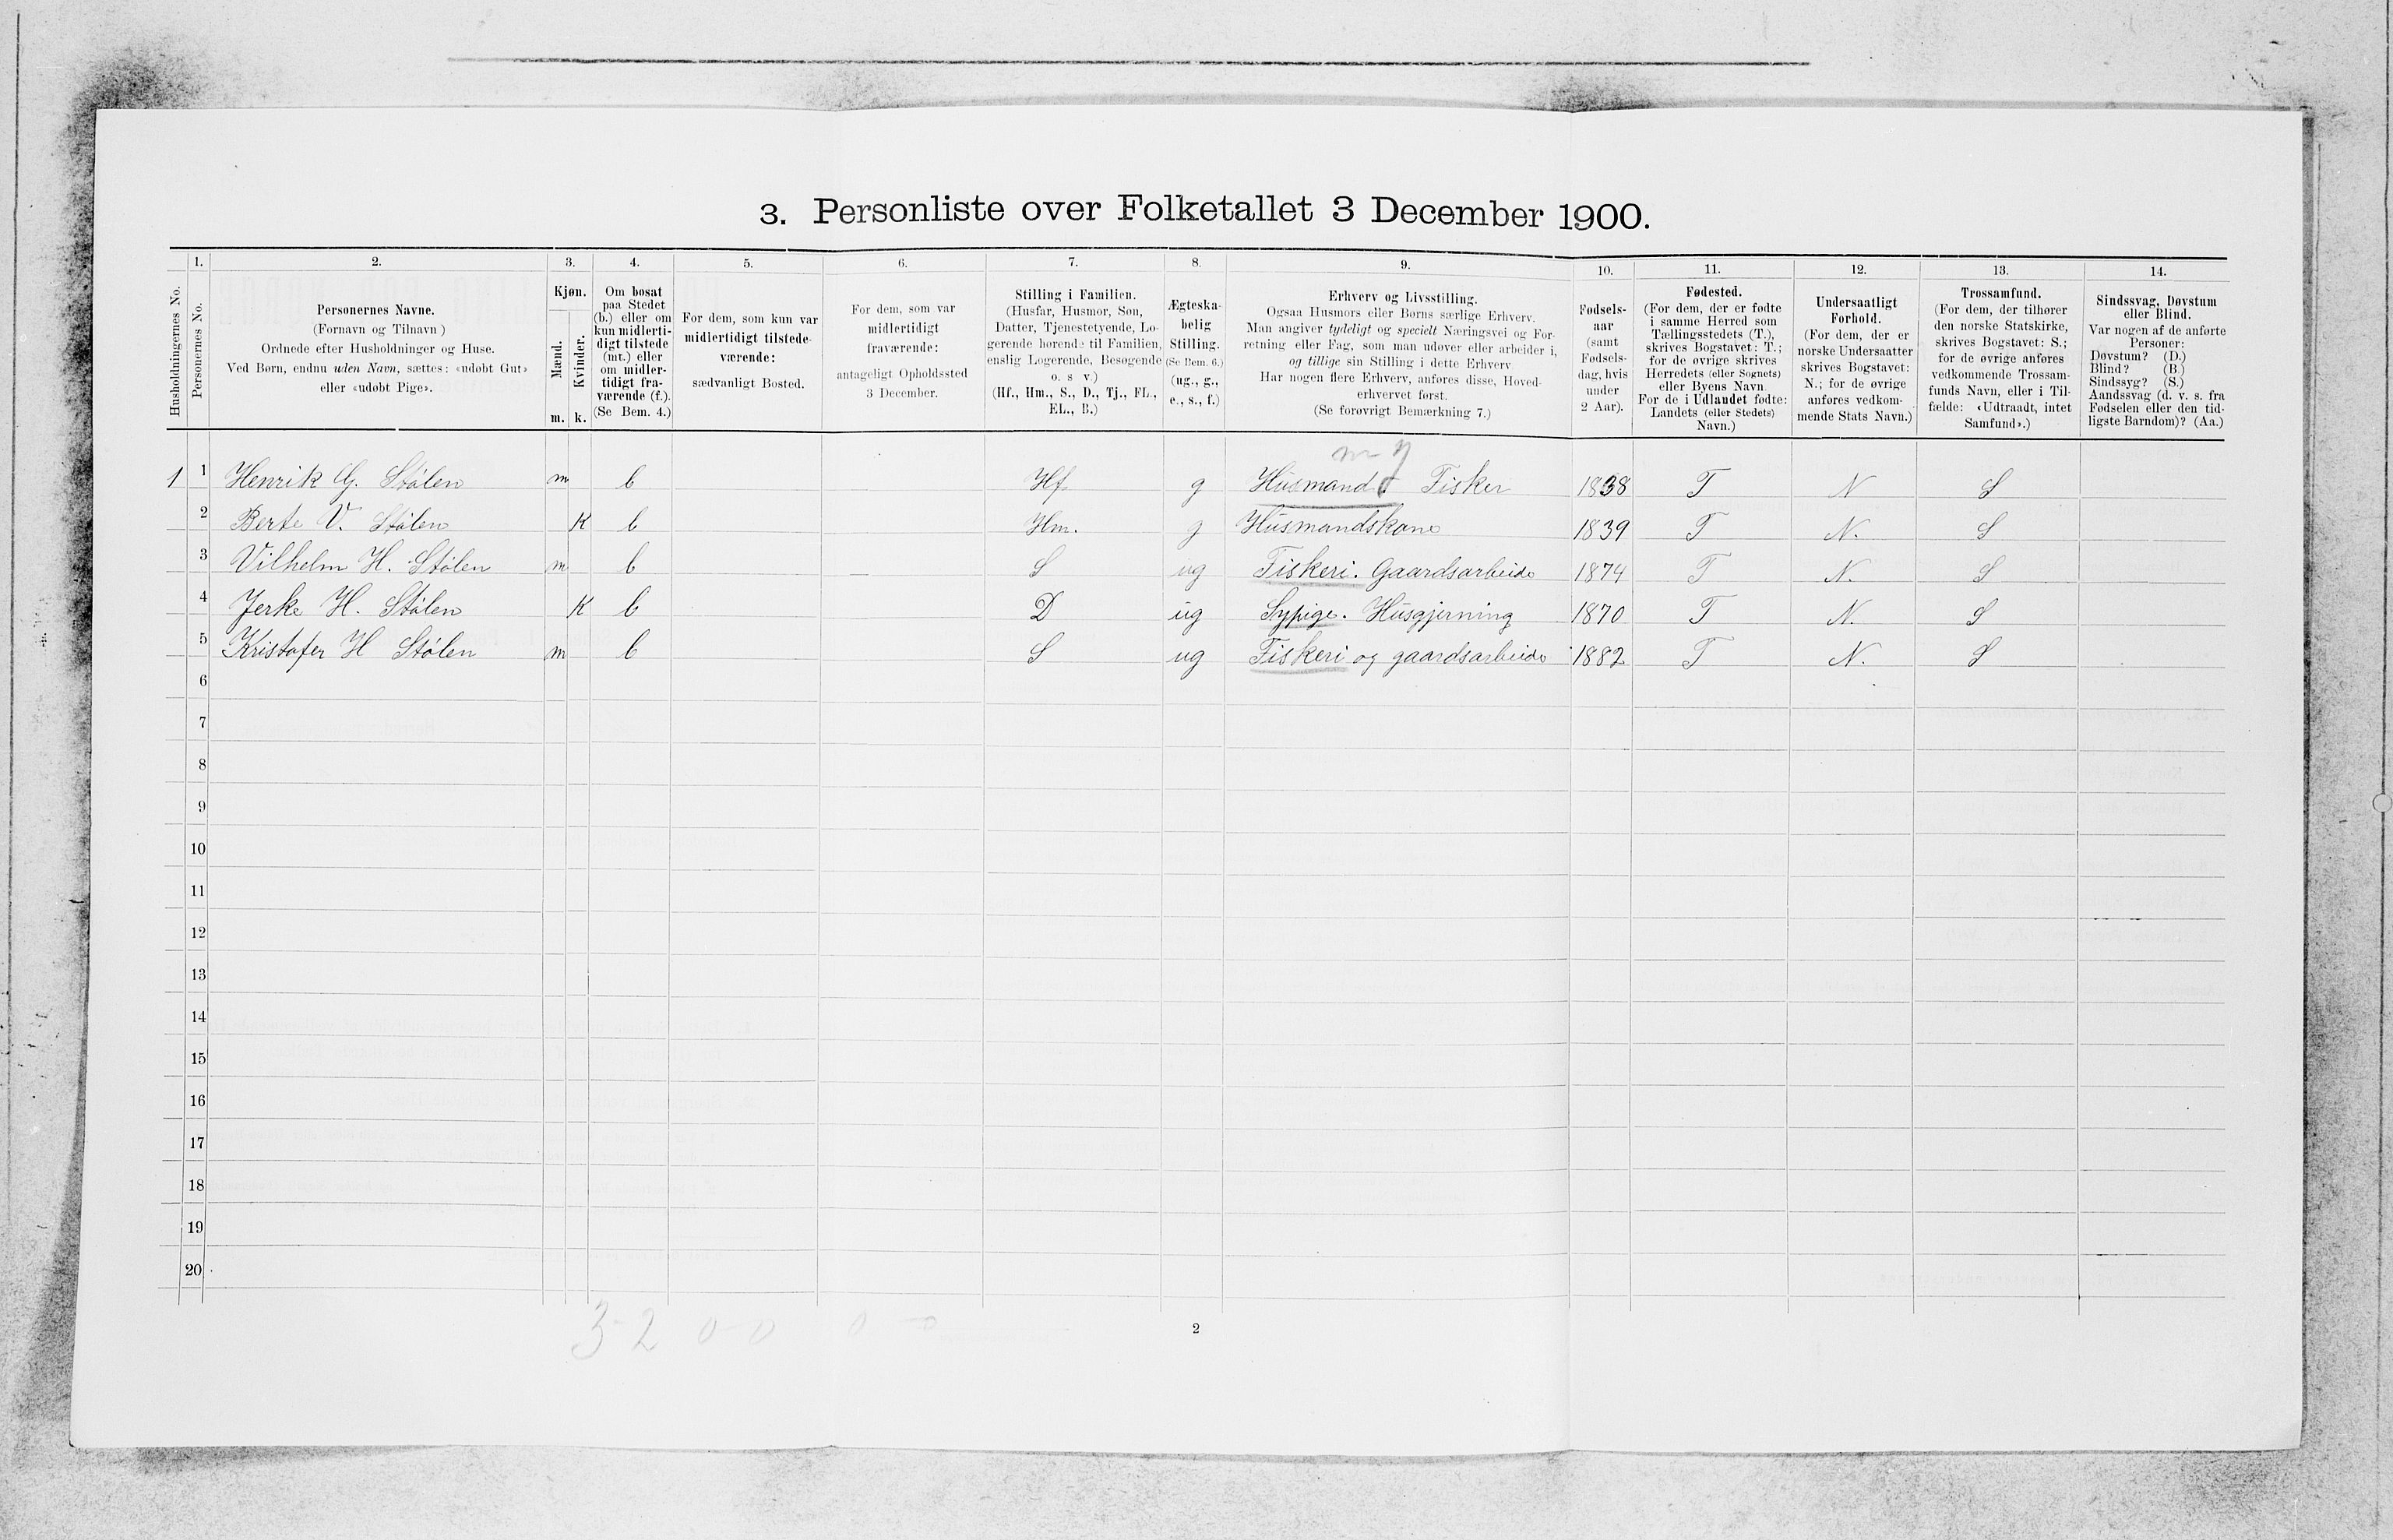 3. Personliste over Folketallet 3 December 1900.
1. 2. 3. 4. 5. 6. 7. 8. 9. 10. 11. 12. 13. 14.
Husholdningernes No.
Personernes No.
Personernes Navne.
(Fornavn og Tilnavn )
Ordnede efter Husholdninger og Huse.
Ved Børn, endnu uden Navn, sættes: «udøbt Gut»
eller «udøbt Pige».
Kjøn.
Mænd.
Kvinder.
m. k.
Om bosat
paa Stedet
(b.) eller om
kun midlerti-
digt tilstede
(mt.) eller
om midler-
tidigt fra-
værende (f.).
(Se Bem. 4.)
For dem, som kun var
midlertidigt tilstede-
værende:
sædvanligt Bosted.
For dem, som var
midlertidigt
fraværende:
antageligt Opholdssted
3 December.
Stilling i Familien.
(Husfar, Husmor, Søn,
Datter, Tjenestetyende, Lo-
gerende hørende til Familien,
enslig Logerende, Besøgende
o. s v.)
(Hf., Hm., S., D., Tj., FL.,
EL., B.)
Ægteska-
belig
Stilling.
(Se Bem. 6.)
(ug., g.,
e., s., f.)
Erhverv og Livsstilling.
Ogsaa Husmors eller Børns særlige Erhverv.
Man angiver tydeligt og specielt Næringsvei og For-
retning eller Fag, som man udøver eller arbeider i,
og tillige sin Stilling i dette Erhverv.
Har nogen flere Erhverv, anføres disse, Hoved-
erhvervet først.
(Se forøvrigt Bemærkning 7.)
Fødsels-
aar
(samt
Fødsels-
dag, hvis
under
2 Aar).
Fødested.
(For dem, der er fødte
i samme Herred som
Tællingsstedets (T.),
skrives Bogstavet: T.;
for de øvrige skrives
Herredets (eller Sognets)
eller Byens Navn.
For de i Udlandet fødte:
Landets (eller Stedets)
Navn.)
Undersaatligt
Forhold.
(For dem, der er
norske Undersaatter
skrives Bogstavet:
N.; for de øvrige
anføres vedkom-
mende Stats Navn.)
Trossamfund.
(For dem, der tilhører
den norske Statskirke,
skrives Bogstavet: S.;
for de øvrige anføres
vedkommende Trossam-
funds Navn, eller i Til-
fælde: «Udtraadt, intet
Samfund».)
Sindssvag, Døvstum
eller Blind.
Var nogen af de anførte
Personer:
Døvstum? (D.)
Blind? (B.)
Sindssyg? (S.)
Aandssvag (d. v. s. fra
Fødselen eller den tid-
ligste Barndom)? (Aa.)
1 1 Henrik G. Stølen m b Hf g Husmand Fisker 1838 T N S
2 Berte V. Stølen K b Hm. g Husmandskone 1839 T N. S
3 Vilhelm H. Stølen m b S ug Fiskeri. Gaardsarbeide 1874 T N. S
4 Jerke H. Stølen K b D ug Sypige. Husgjerning 1870 T N. S
5 Kristofer H Stølen m b S ug Fiskeri og gaardsarbeide 1882 T N. S
6
7
8
9
10
11
12
13
14
15
16
17
18
19
20
3-2 0-0 0-0
2